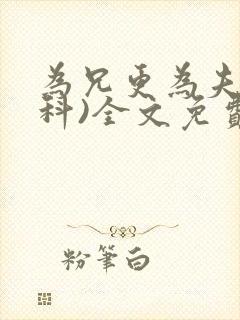 為兄更為夫
科)全文免費
粉筆白